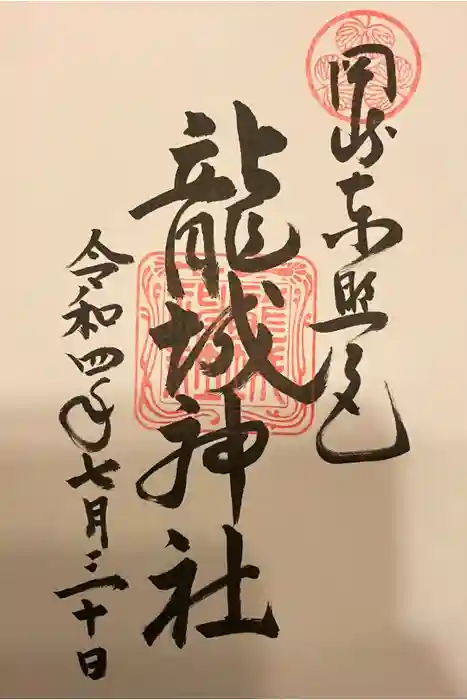 岡崎東照
龍城神社
令和四年七月三十日